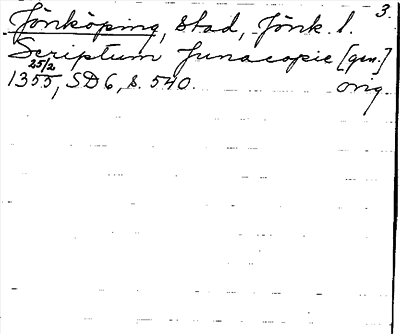 3.
Jönköping, stad, Jönk. l.
Scriptum Junacopie [gen.]
25/2
1355, SD 6, s. 540. orig